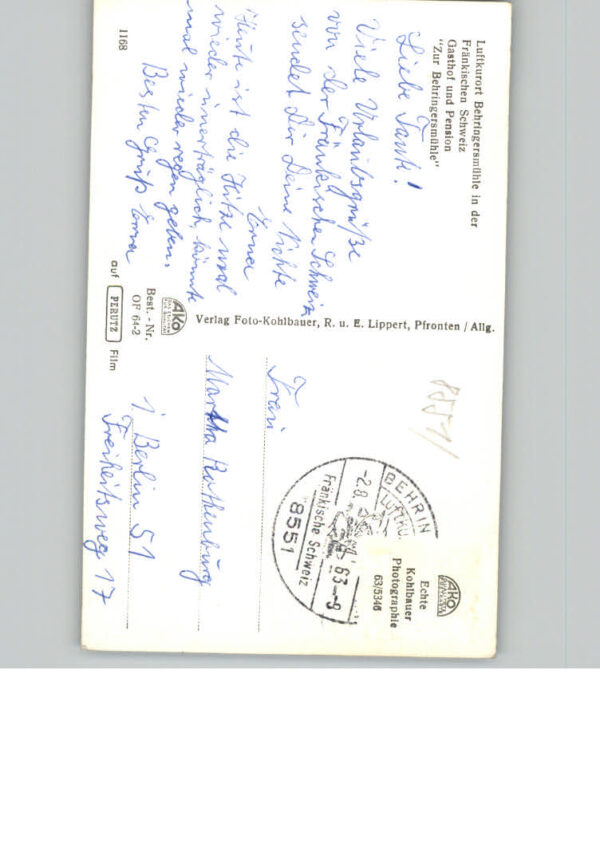 Luftkurort Behringersmühle in der
Fränkischen Schweiz
Gasthof und Pension
"Zur Behringersmühle"
Liebe Tante!
Viele Urlaubsgrüße
von der Fränkischen Schweiz
sendet Dir Deine Nichte
Erna
Heute ist die Hitze mal
wieder unerträglich, könnte
mal wieder regen geben.
Besten Gruß Erna
1168
Verlag Foto-Kohlbauer, R. u. E. Lippert, Pfronten / Allg.
AKO
Best. - Nr.
OF 64-2
auf PERUTZ Film
8551
Frau
Martha Rothenburg
1 Berlin 51
Freiheitsweg 17
BEHRIN
LUFTKU
-2.8. 63-9
Fränkische Schweiz
8551
AKO
Echte
Kohlbauer
Photographie
63/5346